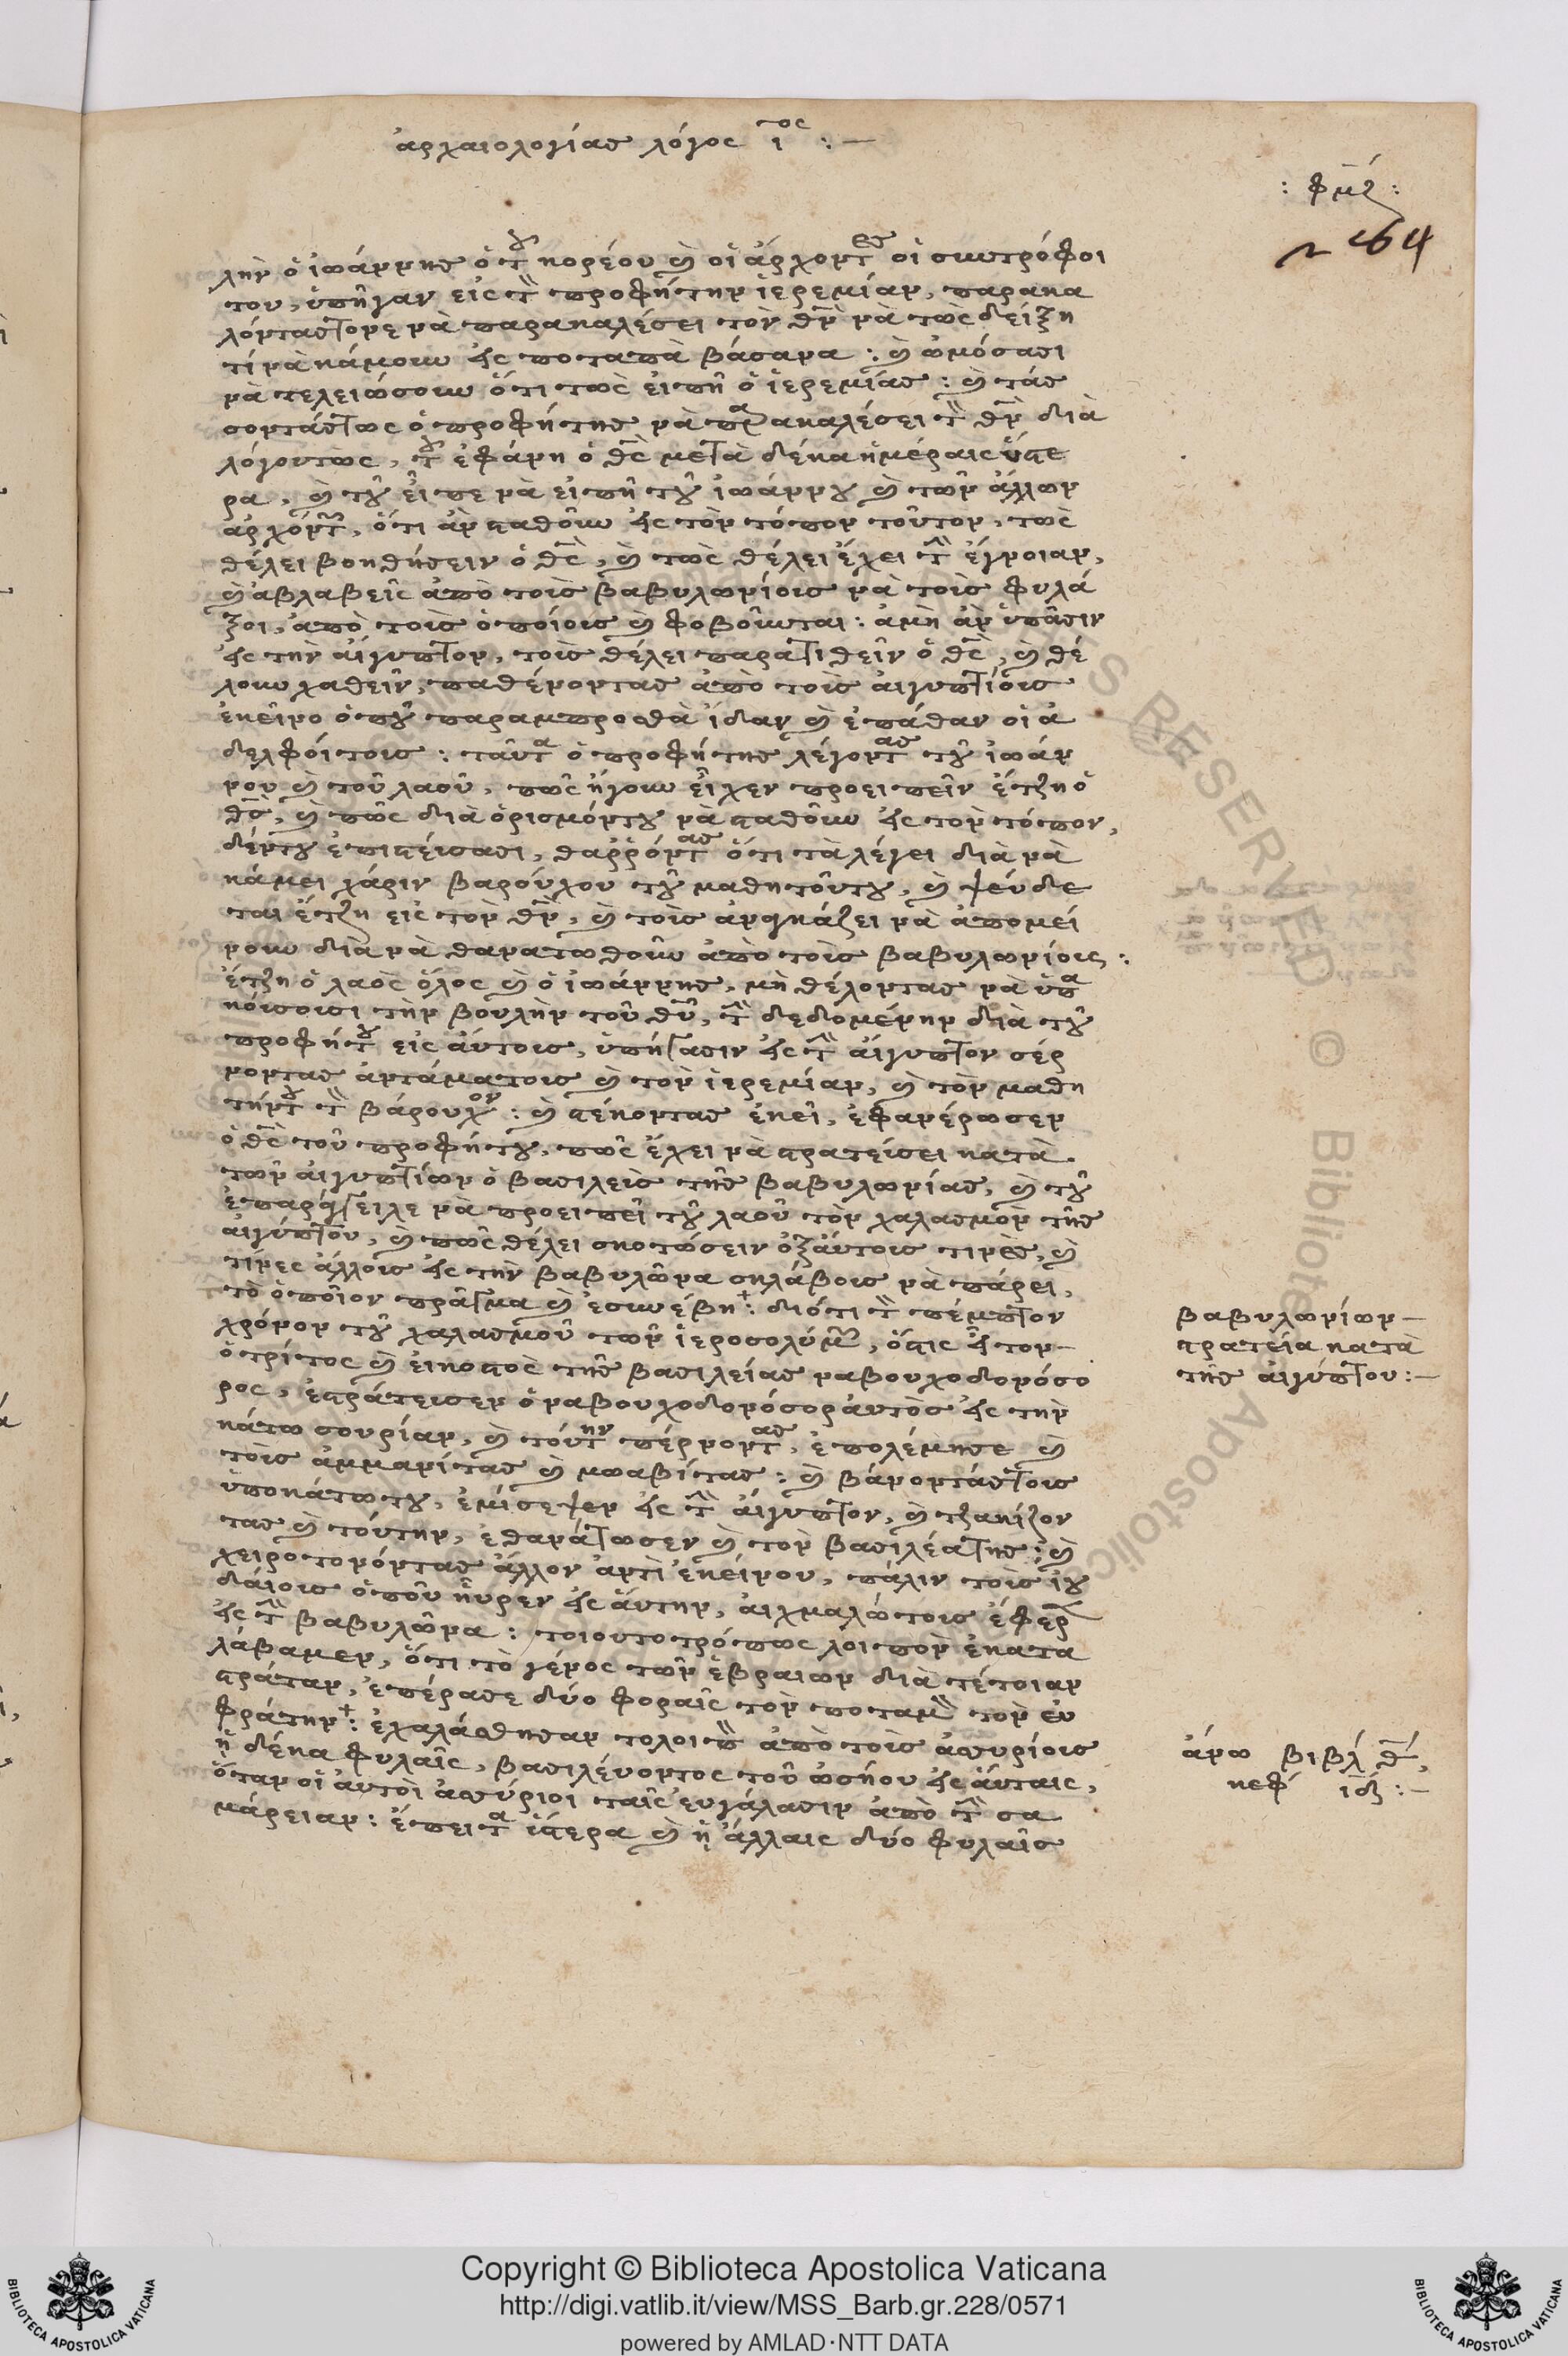 ἀρχαιολογίας λόγος ι^ος :—
: φμζ :
264
λὴν ὁ ἰωάννης ὁ τοῦ κορέου καὶ οἱ ἄρχοντες οἱ σιωτρόφοι
του, ὑπῆγαν εἰς τὸν προφήτην ἱερεμίαν, παρακα
λόντας τονε νὰ παρακαλέσει τὸν θν νὰ τοὺς δείξη
τί νὰ κάμουν εἰς ποταπὰ βάσανα : καὶ ὠμόσασι
νὰ τελειώσουν ὅτι τοὺς εἰπῆ ὁ ἱερεμίας : καὶ τάσ
σοντάς τους ὁ προφήτης νὰ παρακαλέσει τὸν θν διὰ
λόγου τους, τοῦ ἐφάνη ὁ θς μετὰ δέκα ἡμέραις ὕστε
ρα, καὶ τοῦ εἶπε νὰ εἰπῆ τοῦ ἰωάννου καὶ τῶν ἄλλων
ἀρχόντων, ὅτι ἂν σταθοῦν εἰς τὸν τόπον τοῦτον, τοὺς
θέλει βοηθήσειν ὁ θς, καὶ τοὺς θέλει ἔχει τὴν ἔγνοιαν,
καὶ ἀβλαβεῖς ἀπὸ τοὺς βαβυλωνίους νὰ τοὺς φυλά
ξοι, ἀπὸ τοὺς ὁποίους καὶ φοβοῦνται : ἀμὴ ἂν ὑπᾶσιν
εἰς τὴν αἴγυπτον, τοὺς θέλει παρατιθεῖν ὁ θς, καὶ θέ
λουν χαθεῖν, παθένοντας ἀπὸ τοὺς αἰγυπτίους
ἐκεῖνο ὁποῦ παραμπροσθὰ ἴδαν καὶ ἐπάθαν οἱ ἀ
δελφοί τους : ταῦτα ὁ προφήτης λέγοντας τοῦ ἰωάν
νου καὶ τοῦ λαοῦ, πῶς ἤγουν εἶχεν προειπεῖν ἔτζη ὁ
θς, καὶ πῶς διὰ ὁρισμόν του νὰ σταθοῦν εἰς τὸν τόπον,
δέν του ἐπιστεύσασι, θαῤῥόντας ὅτι τὰ λέγει διὰ νὰ
κάμει χάριν βαρούχου τοῦ μαθητοῦ του, καὶ ψεύδε
ται ἔτζη εἰς τὸν θν, καὶ τοὺς ἀναγκάζει νὰ ἀπομεί
νουν διὰ νὰ θανατωθοῦν ἀπὸ τοὺς βαβυλωνίους :
ἔτζη ὁ λαὸς ὅλος καὶ ὁ ἰωάννης, μὴ θέλοντας νὰ ὑπα
κούσουσι τὴν βουλὴν τοῦ θυ, τὴν δεδομένην διὰ τοῦ
προφήτου εἰς αὐτοὺς, ὑπήγασιν εἰς τὴν αἴγυπτον σέρ
νοντας ἀντάμα τους καὶ τὸν ἱερεμίαν, καὶ τὸν μαθη
τήν του τὸν βάρουχον : καὶ στέκοντας ἐκεῖ, ἐφανέρωσεν
ὁ θς τοῦ προφήτου, πῶς ἔχει νὰ στρατεύσει κατὰ
τῶν αἰγυπτίων ὁ βασιλεὺς τῆς βαβυλωνίας, καὶ τοῦ
ἐπαράγγειλε νὰ προειπεῖ τοῦ λαοῦ τὸν χαλασμὸν τῆς
αἰγύπτου, καὶ πῶς θέλει σκοτώσειν ὀξ αὐτοὺς τινὲς, καὶ
τίνες ἄλλους εἰς τὴν βαβυλῶνα σκλάβους νὰ πάρει,
τὸ ὁποῖον πρᾶγμα καὶ ἐσυνέβη + : διότι τὸν πέμπτον
χρόνον τοῦ χαλασμοῦ τῶν ἱεροσολύμων, ὅστις ἦτον
ὁ τρίτος καὶ εἰκοστὸς τῆς βασιλείας ναβουχοδονόσο
ρος, ἐστράτευσεν ὁ ναβουχοδονόσορ αὐτὸς εἰς τὴν
κάτω συρίαν, καὶ τούτην πέρνοντας, ἐπολέμησε καὶ
τοὺς ἀμμανίτας καὶ μωαβίτας : καὶ βάνοντάς τους
ὑποκάτω του, ἐμίσεψεν εἰς τὴν αἴγυπτον, καὶ τζακίζον
τας καὶ τούτην, ἐθανάτωσεν καὶ τὸν βασιλέα της : καὶ
χειροτονόντας ἄλλον ἀντὶ ἐκείνου, πάλιν τοὺς ἰου
δαίους ὁποῦ ηὗρεν εἰς αὐτὴν, αἰχμαλώτους ἔφερεν
εἰς τὴν βαβυλῶνα : τοιουτοτρόπως λοιπὸν ἐκατα
λάβαμεν, ὅτι τὸ γένος τῶν ἑβραίων διὰ τέτοιαν
στράταν, ἐπέρασε δύο φοραῖς τὸν ποταμὸν τὸν εὐ
φράτην + : ἐχαλάσθησαν τολοιπὸν ἀπὸ τοὺς ἀσσυρίους
ἡ δέκα φυλαῖς, βασιλεύοντος τοῦ ὠσήου εἰς αὐταῖς,
ὅταν οἱ αὐτοὶ ἀσσύριοι ταῖς εὐγάλασιν ἀπὸ τὴν σα
μάρειαν : ἔπειτα ὕστερα καὶ ἡ ἄλλαις δύο φυλαῖς
βαβυλωνίων
στρατεία κατὰ
τῆς αἰγύπτου :—
ἄνω βιβλ θ,
κεφ ιδ :—
Copyright © Biblioteca Apostolica Vaticana
http://digi.vatlib.it/view/MSS_Barb.gr.228/0571
powered by AMLAD·NTT DATA